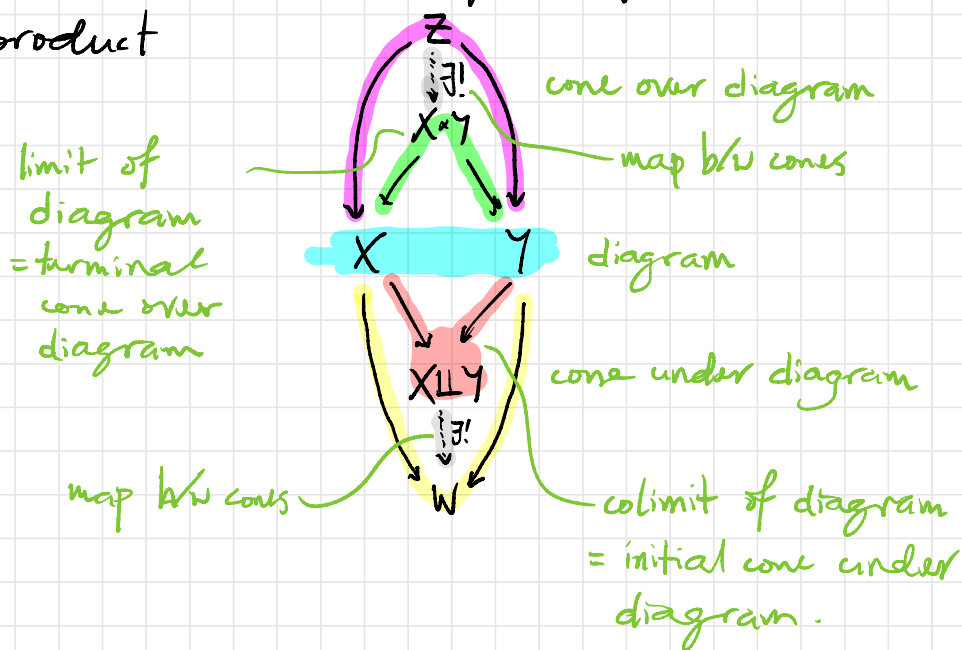 product
Z
∃!
cone over diagram
X×Y
map b/w cones
limit of
diagram
= turminal
cone over
diagram
X Y
diagram
X⨿Y
cone under diagram
∃!
map b/w cones
W
colimit of diagram
= initial cone under
diagram.